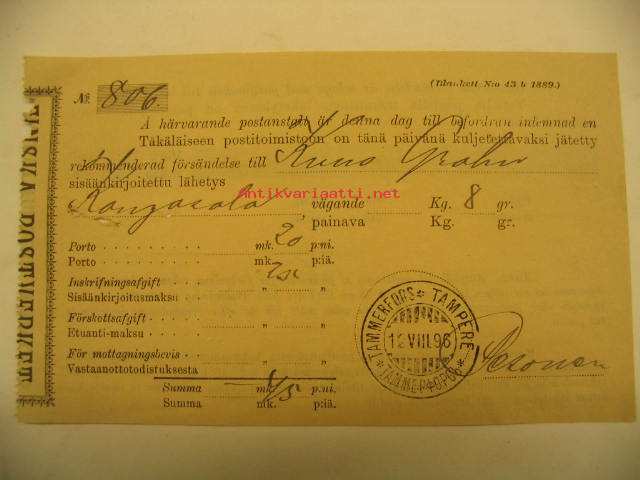 № 806.
(Blankett N:o 43 b 1889.)
Å härvarande postanstalt är denna dag till befordran inlemnad en
Täkäläiseen postitoimistoon on tänä päivänä kuljetettavaksi jätetty
rekommenderad försändelse till Kuno Grahn
sisäänkirjoitettu lähetys
Antikvariaatti.net
Kangasala vägande Kg. 8 gr.
painava Kg. gr.
Porto mk. 20 p:ni.
Porto mk. p:iä.
Inskrifningsafgift 25 " "
Sisäänkirjoitusmaksu
Förskottsafgift " "
Etuanti-maksu " "
För mottagningsbevis " "
Vastaanottotodistuksesta
Summa mk. 45 p:ni.
Summa mk. p:iä.
TAMMERFORS * TAMPERE
12 VIII.96
* ТАММЕРФОРСЪ *
FINSKA POSTVERKET